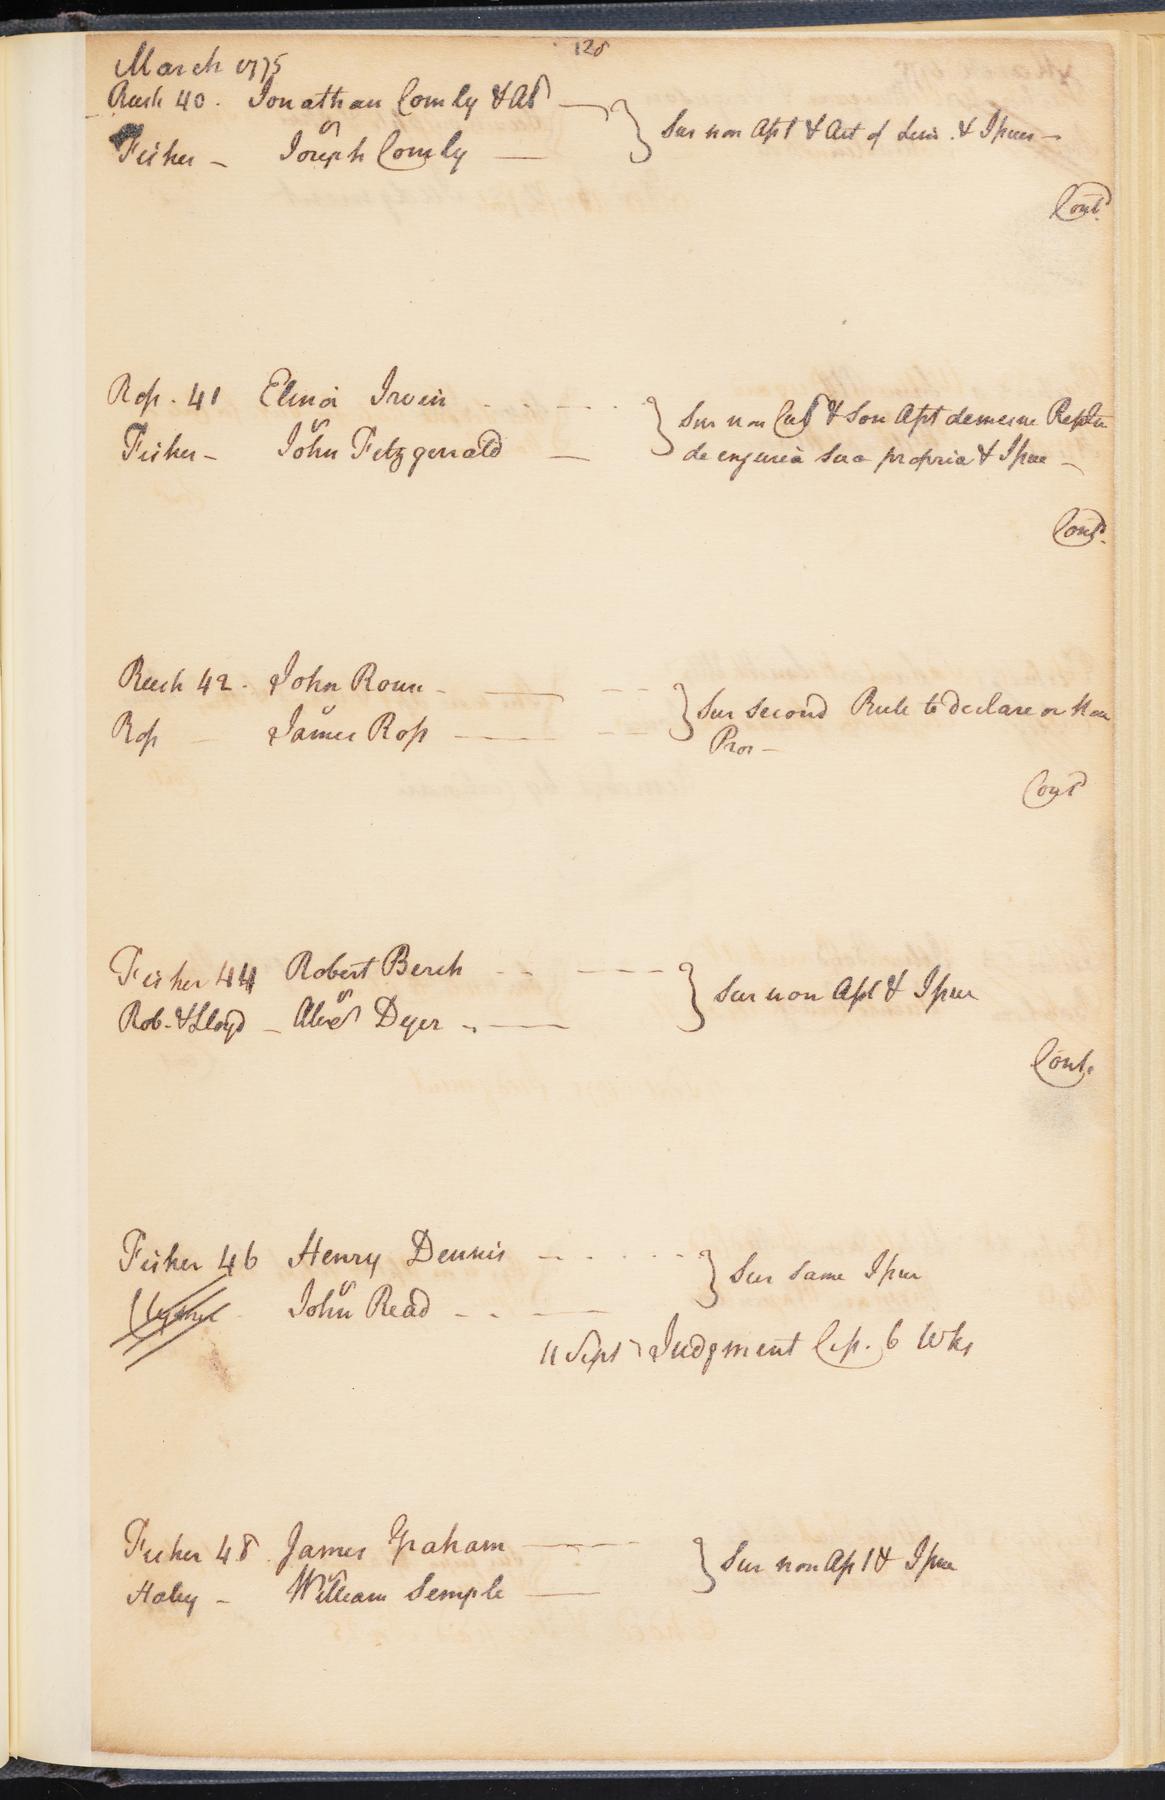 128
March 1775
Rush 40. Jonathan Comly & Al
vs
Fisher - Joseph Comly
Sur non Apt & Act of Lim. & Issues
Cont.
Ross. 41 Elinor Irvin
vs
Fisher - John Fitzgerrald
Sur non Cul & Son Aslt demesne Replin
de enjuria sua propria & Issue
Cont.
Rush 42. John Roun
vs
Ross James Ross
Sur second Rule to declare or Non
Pros
Cont
Fisher 44 Robert Berch
vs
Rob. & Lloyd - Alexr Dyer
Sur non Apt & Issue
Cont.
Fisher 46 Henry Dennis
vs
John Read
Sur same Issue
11 Sept Judgment Cep. 6 Wks
Fisher 48 James Graham
vs
Haley - William Semple
Sur non Apt & Issue